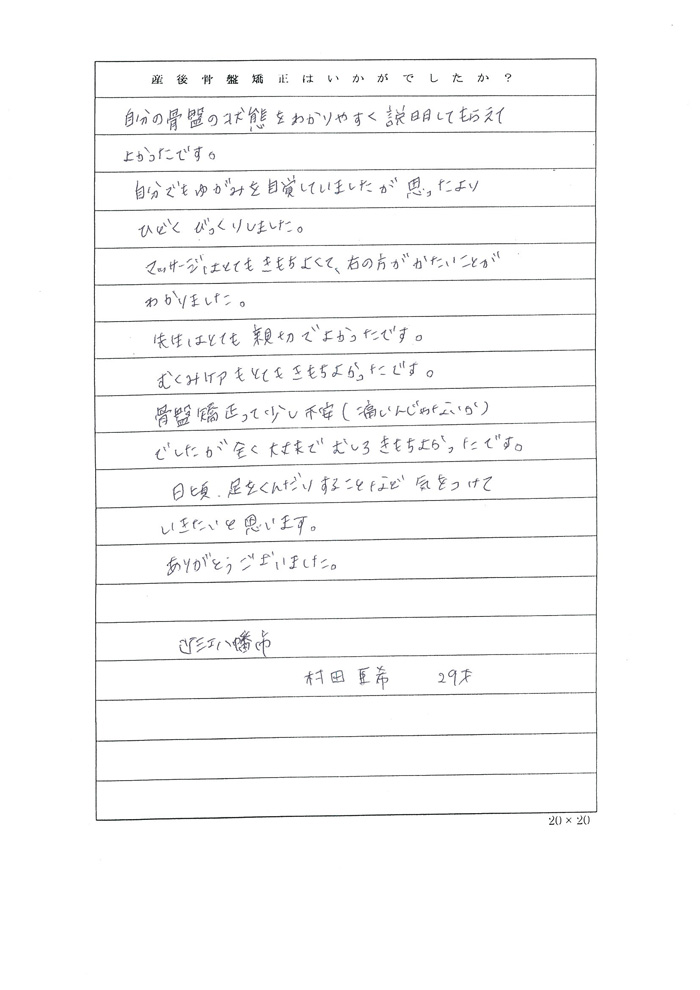 産後骨盤矯正はいかがでしたか？
自分の骨盤の状態をわかりやすく説明してもらえて
よかったです。
自分でもゆがみを自覚していましたが思ったより
ひどくびっくりしました。
マッサージはとてもきもちよくて、右の方がかたいことが
わかりました。
先生はとても親切でよかったです。
むくみケアもとてもきもちよかったです。
骨盤矯正って少し不安(痛いんじゃないか)
でしたが全く大丈夫でむしろきもちよかったです。
日頃、足をくんだりすることなど気をつけて
いきたいと思います。
ありがとうございました。
近江八幡市
村田 希 29才
20×20